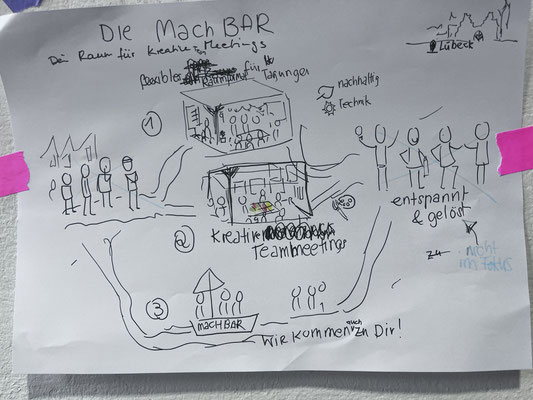 DIE MachBAR
Dein Raum für Kreative Team Meetings
Lübeck
flexibler für Tagungen
nachhaltig
Technik
1
entspannt
& gelöst
2
Kreative
Teammeetings
zu
nicht
im Fokus
3
MACHBAR
Wir kommen auch zu Dir!